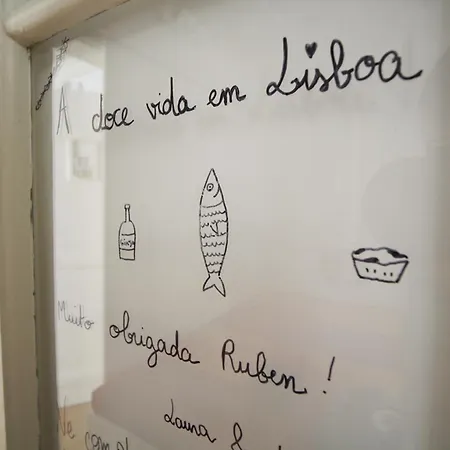 A doce vida em Lisboa
Muito obrigada Ruben !
Laura &